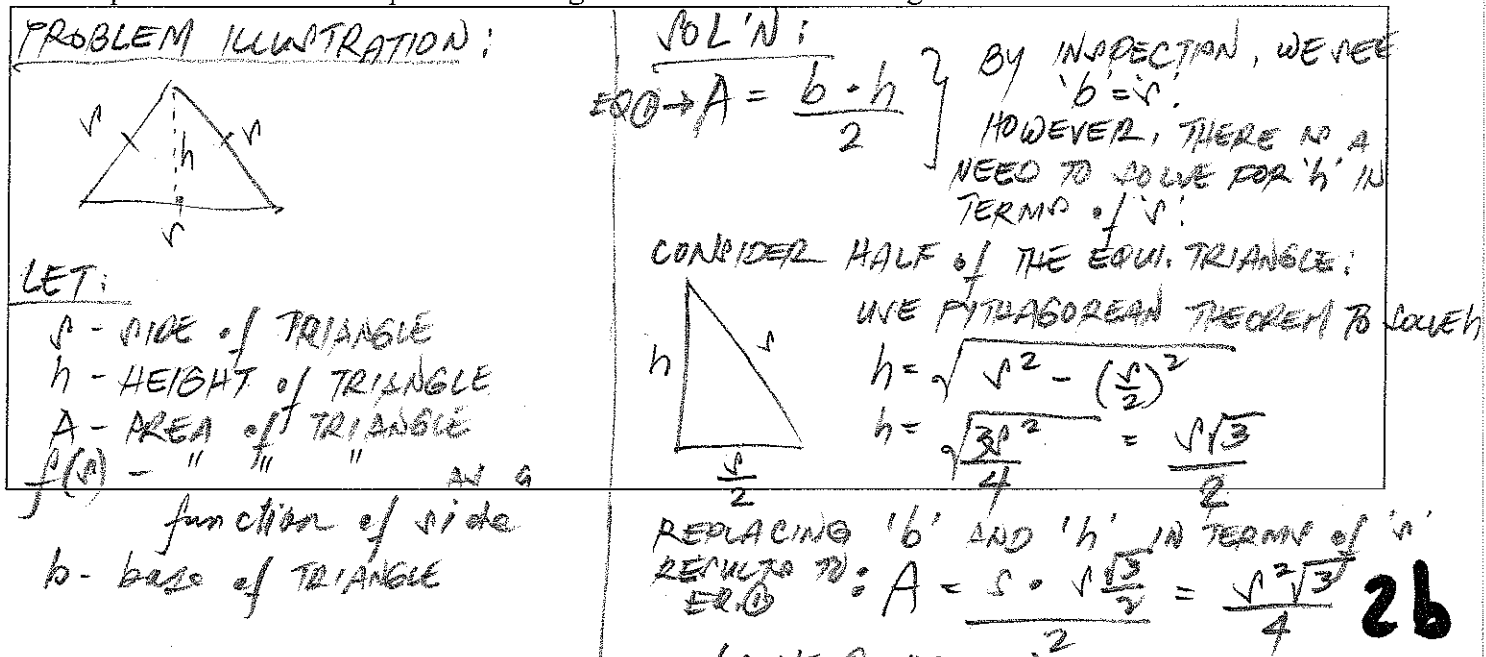 PROBLEM ILLUSTRATION:
s
h
s
s
LET:
s - SIDE of TRIANGLE
h - HEIGHT of TRIANGLE
A - AREA of TRIANGLE
f(s) - " " " as a
function of side
b - base of TRIANGLE
SOL'N:
EQ① → A = b · h / 2
BY INSPECTION, WE SEE
'b' = 's'.
HOWEVER, THERE IS A
NEED TO SOLVE FOR 'h' IN
TERMS of 's'.
CONSIDER HALF of THE EQUI. TRIANGLE:
USE PYTHAGOREAN THEOREM TO SOLVE h
h
s
s/2
h = √(s² - (s/2)²)
h = √(3s²/4) = s√3/2
REPLACING 'b' AND 'h' IN TERMS of 's'
RESULTS TO:
EQ.①
A = (s · s√3/2)/2 = s²√3/4
2b